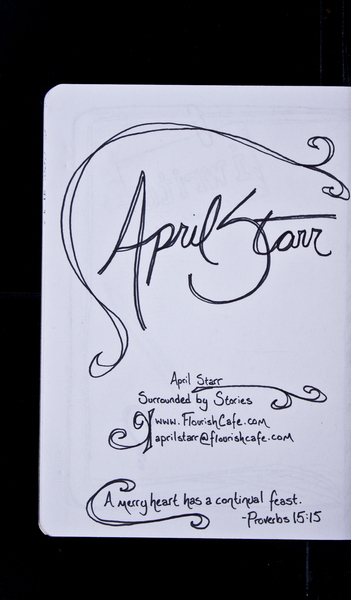 April Starr
April Starr
Surrounded by Stories
www.FlourishCafe.com
aprilstarr@flourishcafe.com
A merry heart has a continual feast.
-Proverbs 15:15